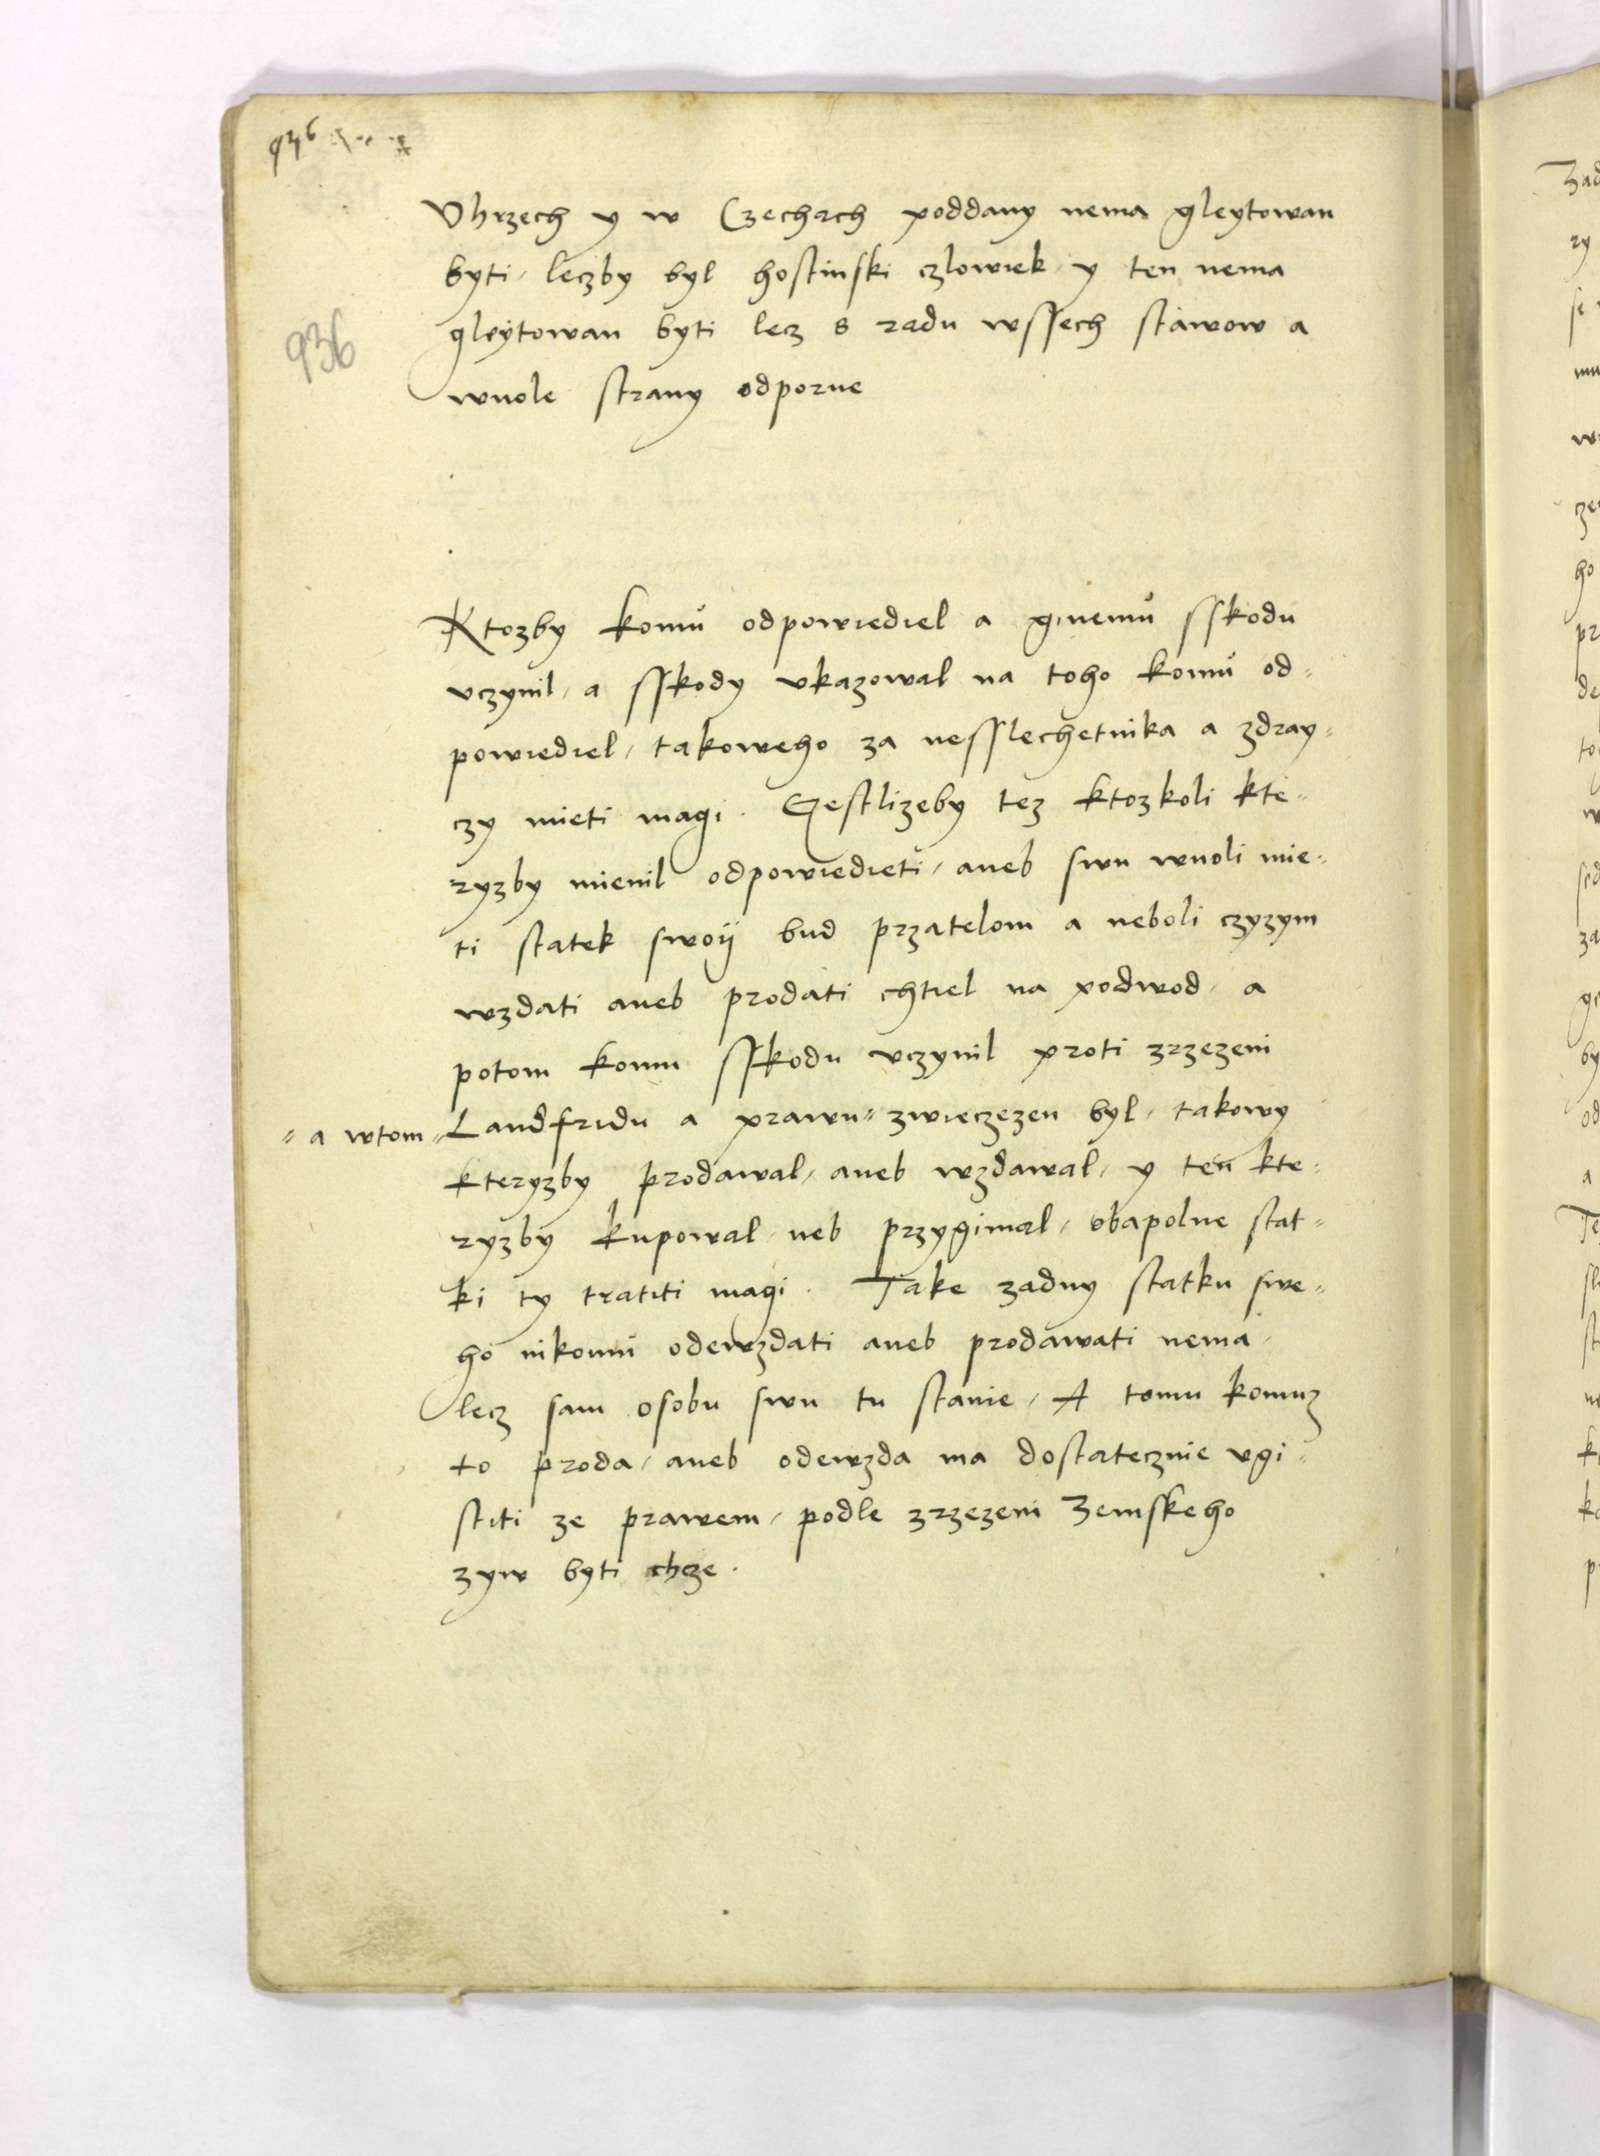 936
Vhrzech y w Czechach poddany nema gleytowan
byti, leczby byl hostinski czlowiek, y ten nema
936
gleytowan byti lecz s radu wssech stawow a
wuole strany odporne
Ktozby komu odpowiediel a ginemu sskodu
vczynil, a sskody vkazowal na toho komu od=
powiediel, takoweho za nesslechetnika a zdray=
czy mieti magi. Gestlizeby tez ktozkoli kte=
ryzby mienil odpowiedieti, aneb swu wuoli mie=
ti statek swoij bud przatelom a neboli czyzym
wzdati aneb prodati chtiel na podwod, a
potom komu sskodu vczynil proti zrzezeni
= a wtom= Landfridu a prawu = zwieczezen byl, takowy
kteryzby prodawal, aneb wzdawal, y ten kte=
ryzby kupowal, neb przygimal, obapolne stat=
ki ty tratiti magi. Take zadny statku swe=
ho nikomu odewzdati aneb prodawati nema,
lecz sam osobu swu tu stanie, A tomu komuz
to proda, aneb odewzda ma dostatecznie vgi=
stiti ze prawem, podle zrzezeni Zemskeho
zyw byti chcze.